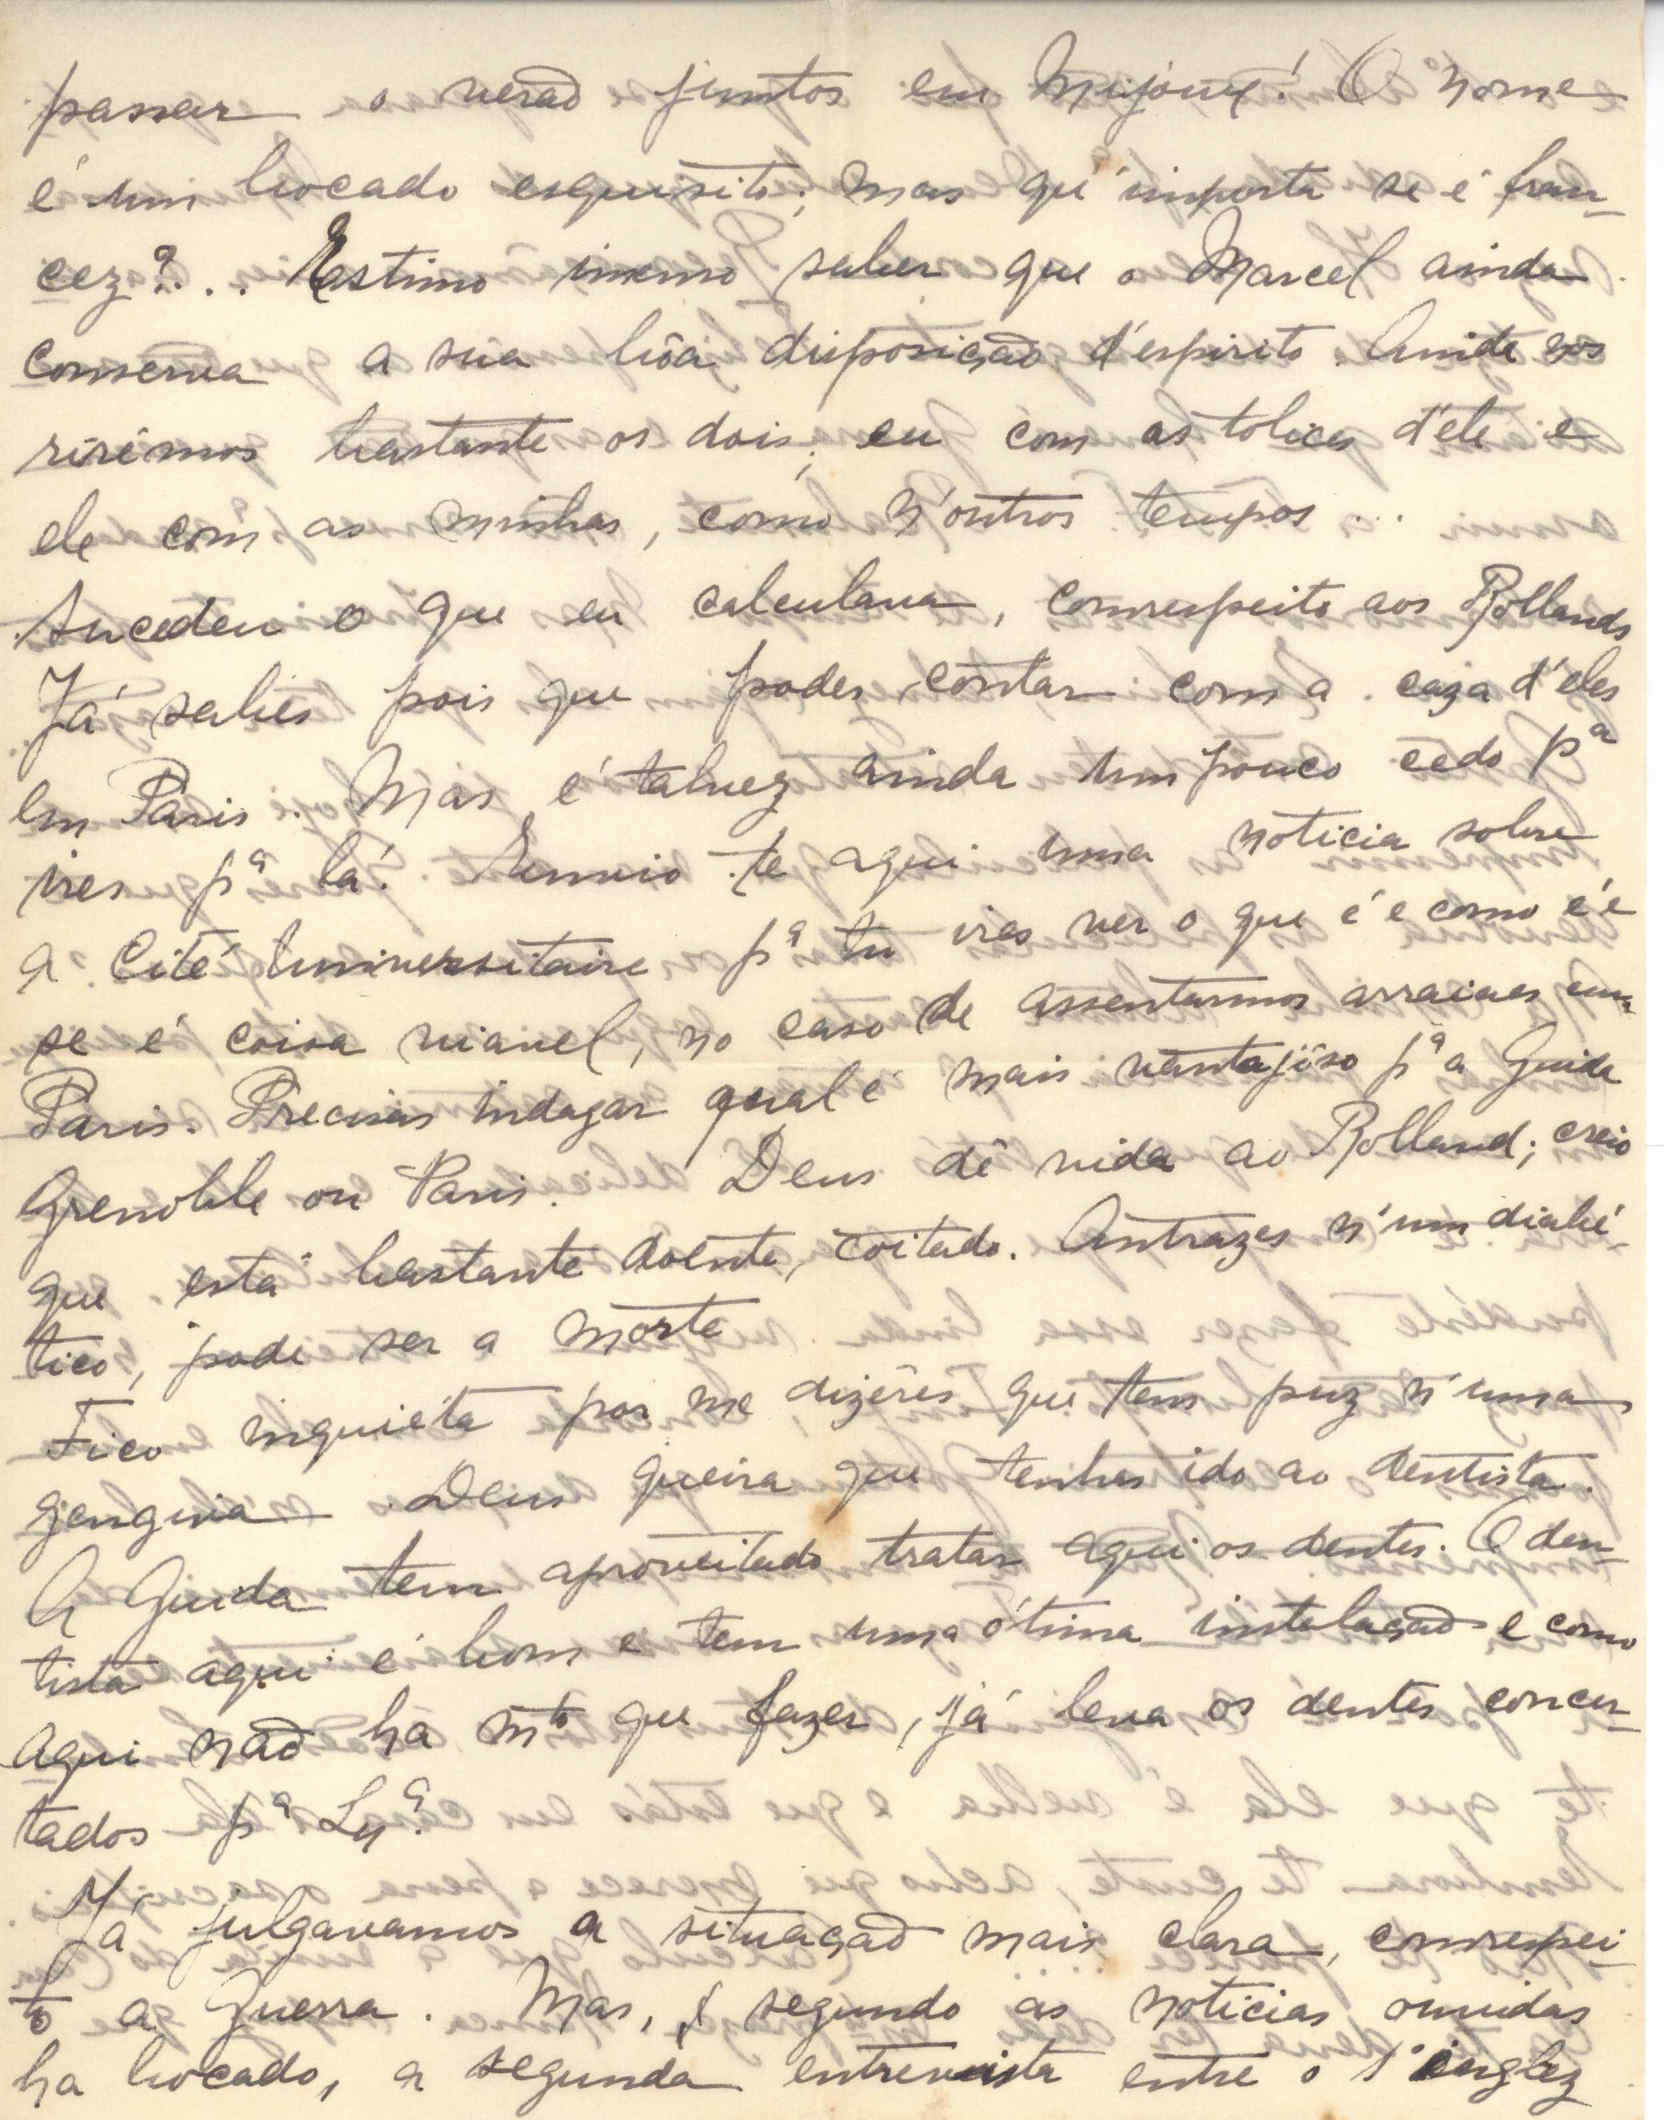 passar o verão juntos em Mijoux! O nome
é um bocado esquisito; mas qu'importa se é fran-
cez?... Estimo imenso saber que o Marcel ainda
conserva a sua bôa disposição d'espirito. Ainda nos
rirêmos bastante os dois; eu com as tolices d'ele e
ele com as minhas, como n'outros tempos...
Sucedeu o que eu calculava, comrespeito aos Rollands
Já sabes pois que podes contar com a caza d'eles
em Paris. Mas é talvez ainda um pouco cedo pª
ires pª lá. Envio-te aqui uma noticia sobre
a Cité Universitaire pª tu ires ver o que é e como é e
se é coisa viavel, no caso de assentarmos arraiaes em
Paris. Precisas indagar qual é mais vantajôso pª a Guida
Grenoble ou Paris. Deus dê vida ao Rolland; creio
que está bastante doente, coitado. Antrazes n'um diabé-
tico, pode ser a morte
Fico inquiéta por me dizêres que tens puz n'uma
gengiva. Deus queira que tenhas ido ao dentista.
A Guida tem aproveitado tratar aqui os dentes. O den-
tista aqui é bom e tem uma ótima instalação e como
aqui não ha mto que fazer, já leva os dentes concer-
tados pª Lxª.
Já julgavamos a situação mais clara, comrespei-
to a Guerra. Mas, segundo as noticias ouvidas
ha bocado, a segunda entrevista entre o 1º inglez